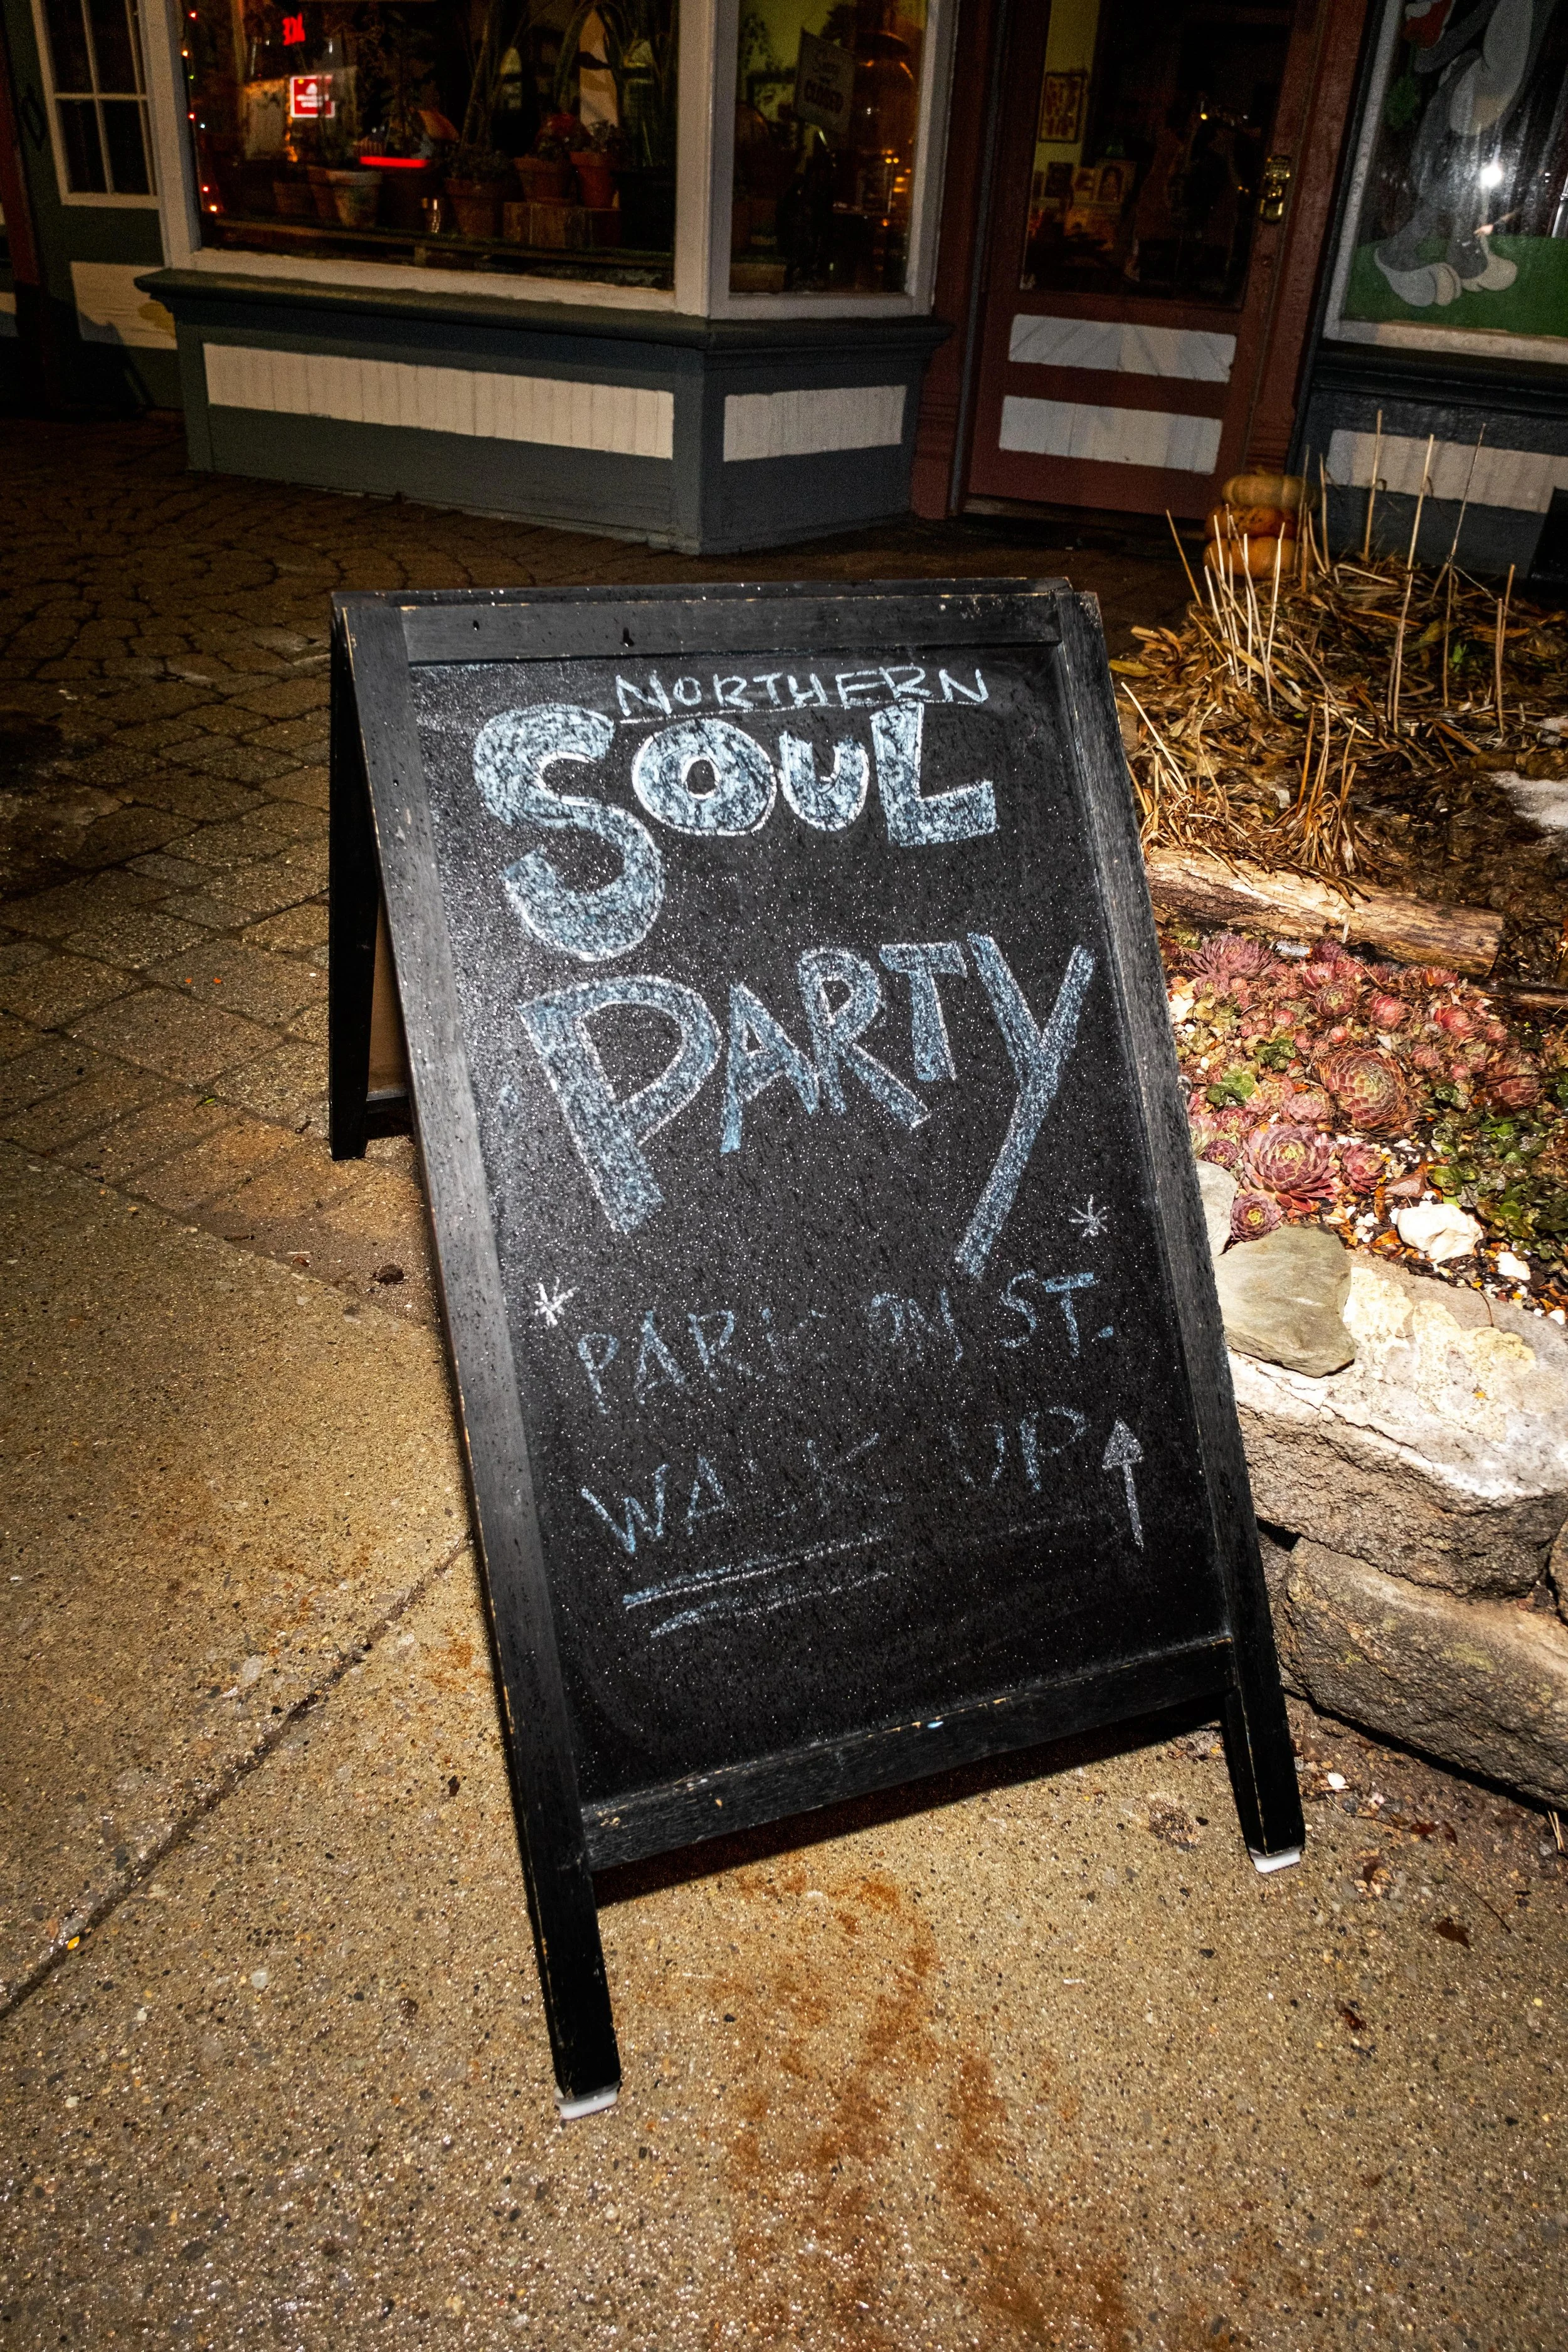 NORTHERN
SOUL
PARTY
* PARK ON ST. *
WALK UP ↑